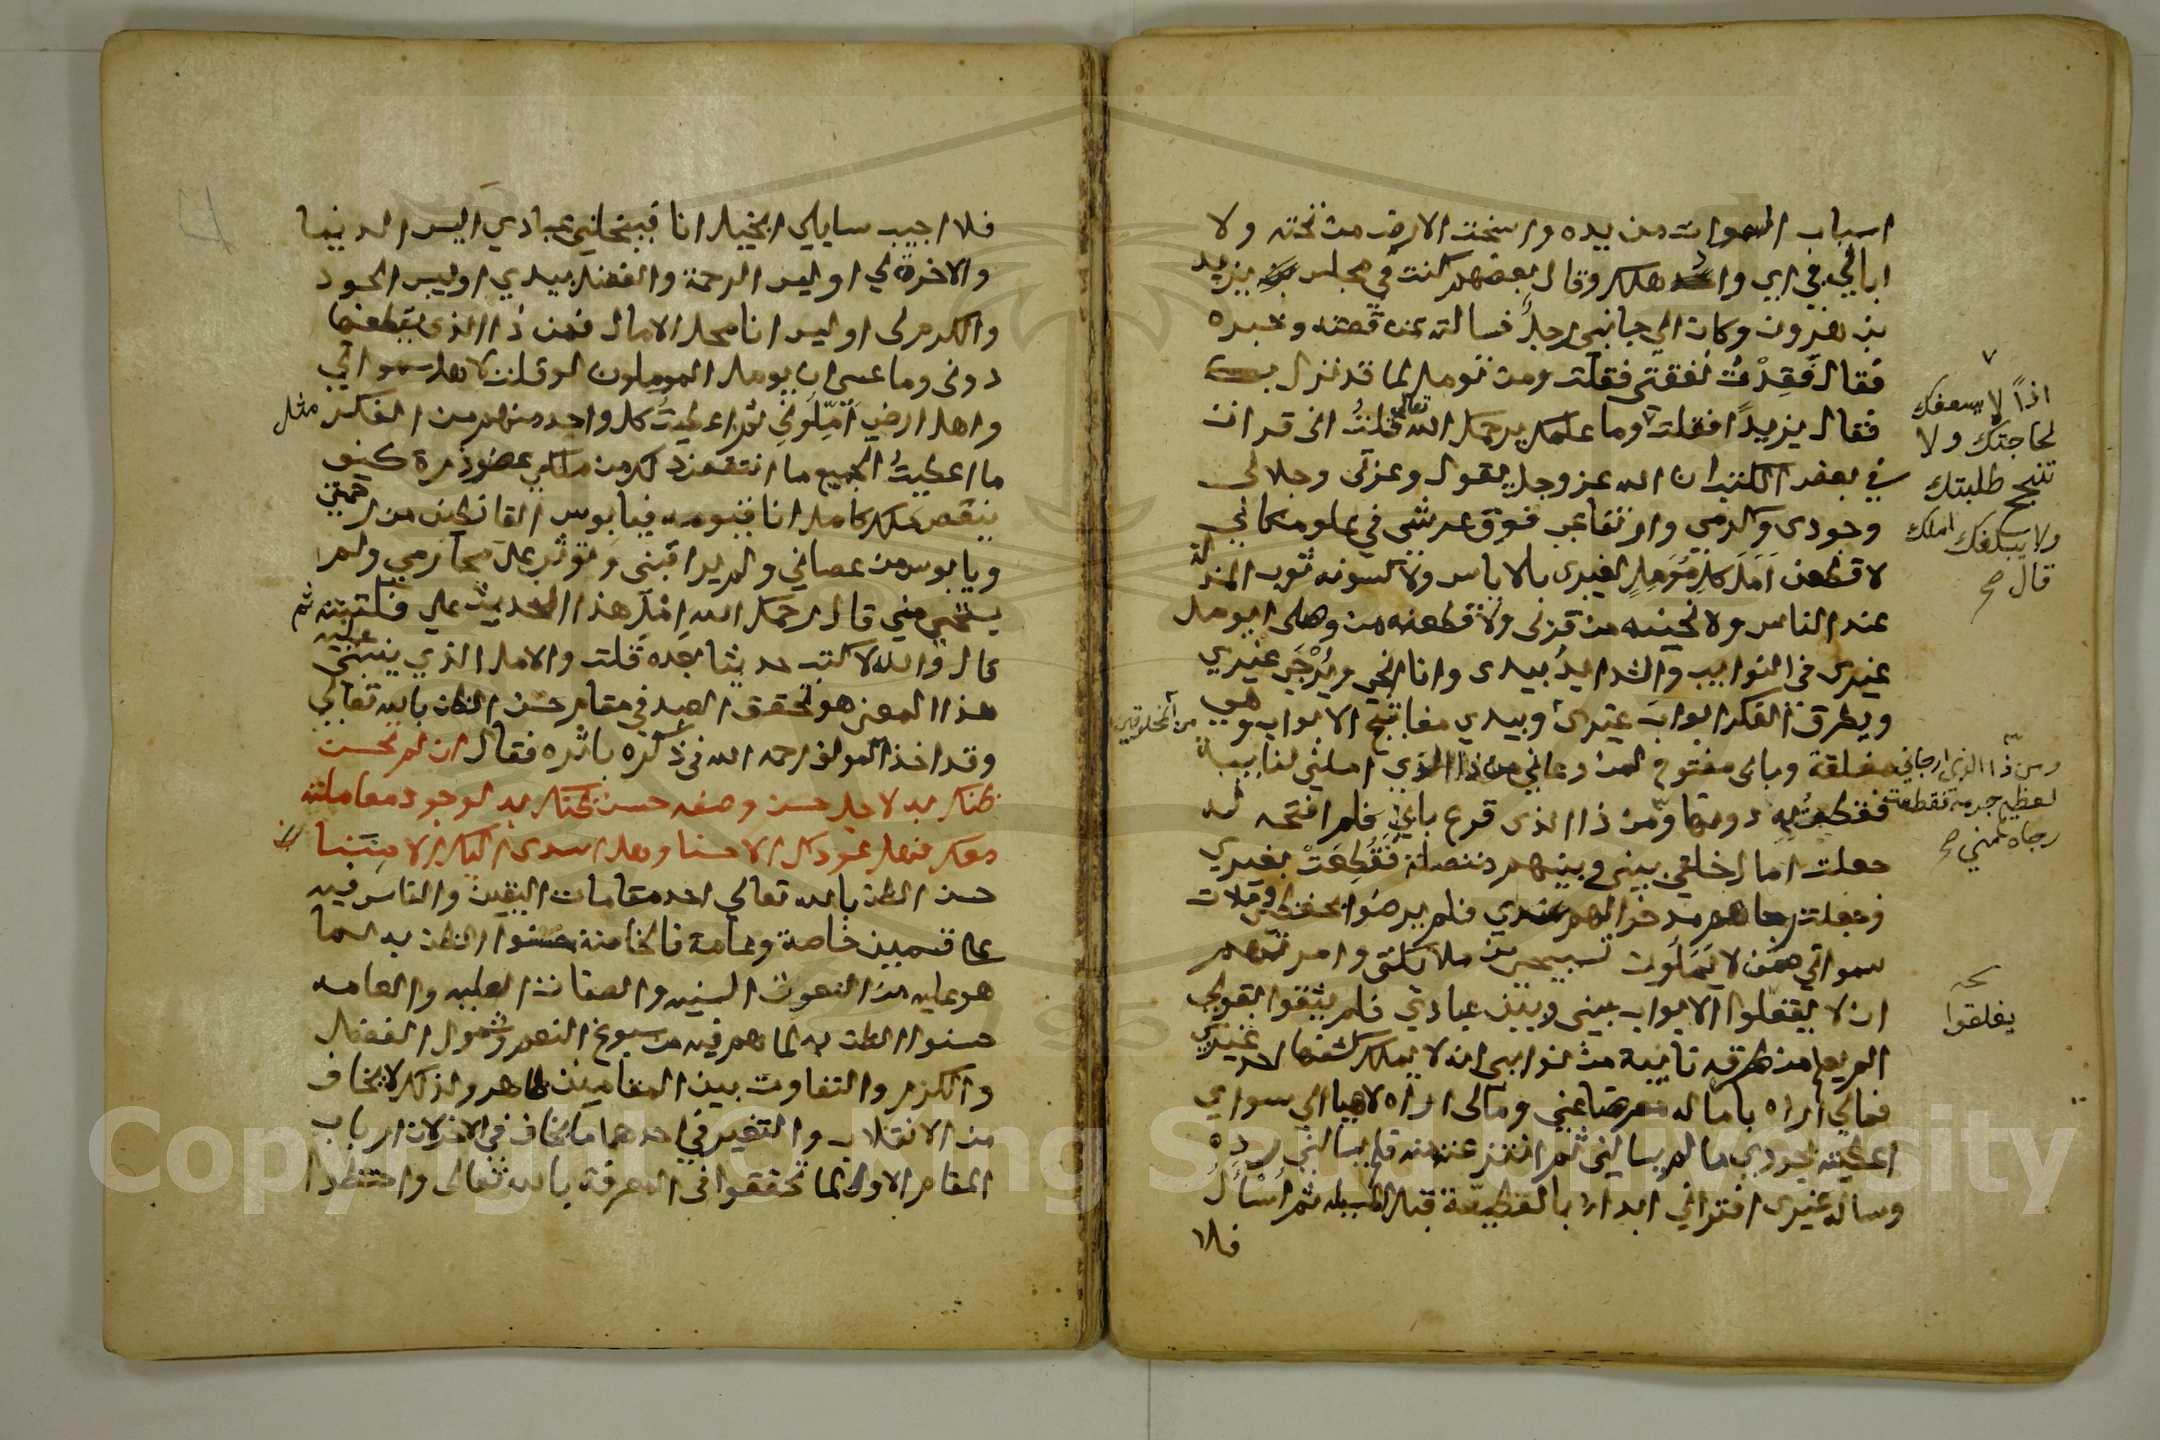 اسباب السموات من يده واسخت الارض من تحته ولا
ابالي في اي واد هلك وقال بعضهم كنت في مجلس يزيد
بن هرون وكان الي جانبي رجل فسالته عن قصته وخبره
فقال فقدت نفقتي فقلت ومن تومل لما قد نزل بك
فقال يزيد فقلت وما علمك يرحمك الله تعالي قلت اني قرات
في بعض الكتب ان الله عز وجل يقول وعزتي وجلالي
وجودي وكرمي وارتفاعي فوق عرشي في علو مكاني
لاقطعن امل كل مومل لغيري بالاياس ولاكسونه ثوب المذلة
عند الناس ولانحينه من قربي ولاقطعنه من وصلي ايومل
غيري في النوايب والشدايد بيدي وانا الحي ويرجى غيري
ويطرق الفكر ابواب غيري وبيدي مفاتيح الابواب وهي
مغلقة وبابي مفتوح لمن دعاني من ذا الذي املني لنايبة
فقطعت به دونها ومن ذا الذي قرع بابي فلم افتحه له
جعلت امال خلقي بيني وبينهم متصلة فقطعت بغيري
وجعلت رجاهم مدخرا لهم عندي فلم يرضوا بحفظي وملات
سمواتي ممن لا يملون تسبيحي من ملايكتي وامرتهم
ان لا يقفلوا الابواب بيني وبين عبادي فلم يثقوا بقولي
الم يعلم من طرقه نايبة من نوايبي انه لا يملك كشفها احد غيري
فمالي اراه باماله معرضا عني ومالي اراه لاهيا الي سواي
اعطيته بجودي ما لم يسالني ثم انتزعته منه فلم يسالني رده
وسال غيري افتراني ابدا بالعطية قبل المسيلة ثم اسأل
فلا
اذاً لا يسعفك
لحاجتك ولا
تنجح طلبتك
ولا يبلغك املك
قال صح
من المخلوقين
ومن ذا الذي رجاني
لعظيم جرمه فقطعت
رجاه مني صح
يغلقوا
فلا اجيب سايلي ابخيل انا فيبخلني عبادي اليس الدنيا
والاخرة لي اوليس الرحمة والفضل بيدي اوليس الجود
والكرم لي اوليس انا محل الامال فمن ذا الذي يقطعها
دوني وما عسى ان يومل المومّلون لو قلت لاهل سمواتي
واهل ارضي امّلوني ثم اعطيت كل واحد منهم من الفكر مثل
ما اعطيت الجميع ما انتقص ذلك من ملكي عضو ذرة كيف
ينقص ملك كامل انا قيومه فيا بوس القانطين من رحمتي
ويا بوس من عصاني ولم يراقبني وتوثب علي محارمي ولم
يستحي مني قال رحمك الله امل هذا الحديث علي فكتبته ثم
قال والله لا اكتب حديثا بعده قلت والامل الذي ينبني عليه
هذا المعنى هو تحقق العبد في مقام حسن الظن بالله تعالي
وقد اخذ المولف رحمه الله في ذكره باثره فقال ان لم تحسن
ظنك به لاجل حسن وصفه حسن ظنك به لوجود معاملته
معك فهل عودك الا حسنا وهل اسدى اليك الا مننا
حسن الظن بالله تعالي احد مقامات اليقين والناس فيه
علي قسمين خاصة وعامة فالخاصة حسنوا الظن به لما
هو عليه من النعوت السنيه والصفات العليه والعامه
حسنوا الظن به لما هم فيه من سبوغ النعم وشمول الفضل
والكرم والتفاوت بين المقامين ظاهر ولذلك لا يخاف
من الانقلاب والتغير في احدهما ما يخاف في الاخر لان ارباب
المقام الاول لما تحققوا في المعرفة بالله تعالي
Copyright © King Saud University